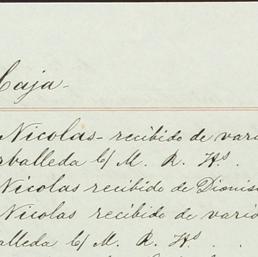 Caja-
Nicolas - recibido de vari
rballeda C/ M. R. Hs.
Nicolas recibido de Dionis
Nicolas recibido de vario
alleda C/ M. R. Hs. . .